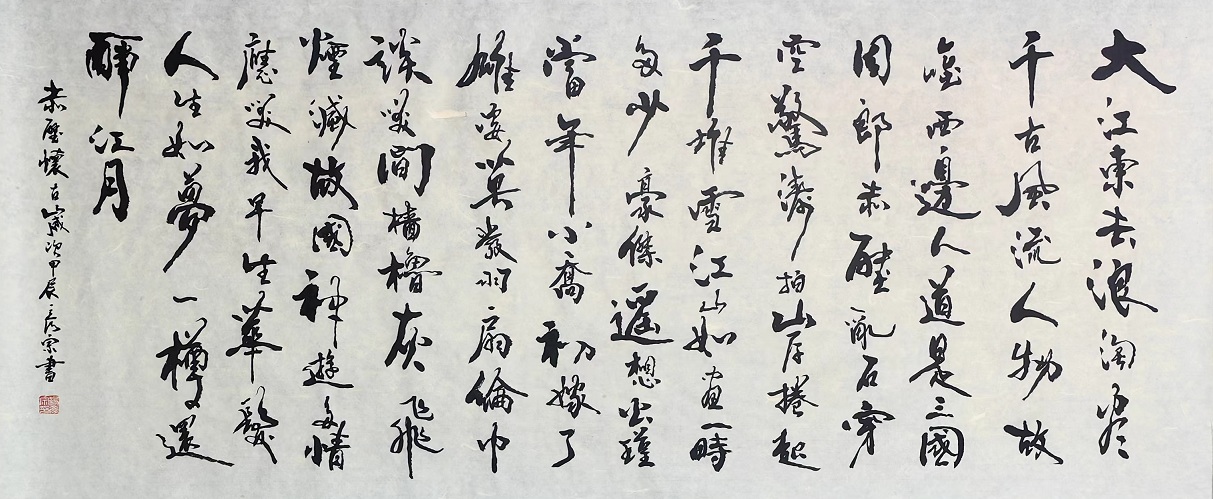 大江東去浪淘尽
千古風流人物故
壘西邊人道是三國
周郎赤壁亂石穿
空驚濤拍岸捲起
千堆雪江山如畫一時
多少豪傑遥想公瑾
當年小喬初嫁了
雄姿英發羽扇綸巾
談笑間檣櫓灰飛
煙滅故國神遊多情
應笑我早生華髮
人生如夢一樽還
酹江月
赤壁懷古歲次甲辰彦宗書